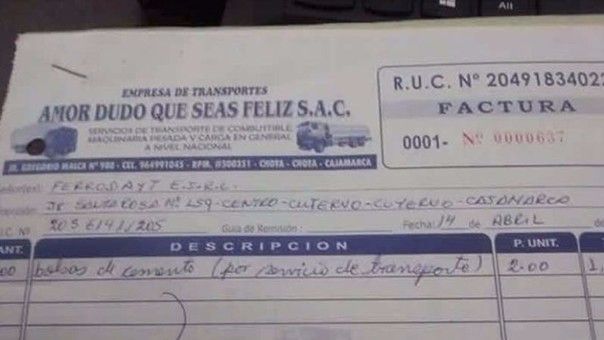 All
EMPRESA DE TRANSPORTES
AMOR DUDO QUE SEAS FELIZ S.A.C.
SERVICIOS DE TRANSPORTE DE COMBUSTIBLE
MAQUINARIA PESADA Y CARGA EN GENERAL
A NIVEL NACIONAL
JR. GREGORIO MALCA Nº 900 - CEL. 964991045 - RPM. #500351 - CHOTA - CHOTA - CAJAMARCA
R.U.C. Nº 20491834022
FACTURA
0001- Nº 0000637
FERRODAYT E.I.R.L.
JR SANTA ROSA Nº 459-CENTRO-CUTERVO-CUTERVO-CAJAMARCA
U.C. Nº Guia de Remisión: Fecha: 14 de ABRIL
ANT. DESCRIPCION P. UNIT.
00 bolsas de cemento (por servicio de transporte) 2.00